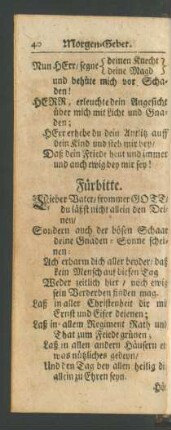 40 Morgen-Gebet.
Nun HErr/ segne { deinen Knecht
deine Magd
und behüte mich vor Scha-
den!
HERR, erleuchte dein Angesicht
über mich mit Licht und Gna-
den;
HErr erhebe du dein Antlitz auff
dein Kind und steh mir bey/
Daß dein Friede heut und immer
und auch ewig bey mir sey!
Fürbitte.
Lieber Vater/ frommer GOTT/
du läßst nicht allein den Dei-
nen/
Sondern auch der bösen Schaar
deine Gnaden-Sonne schei-
nen:
Ach erbarm dich aller beyder/ daß
kein Mensch auf diesen Tag
Weder zeitlich hier/ noch ewig
sein Verderben finden mag.
Laß in aller Christenheit dir mit
Ernst und Eifer dienen;
Laß in allem Regiment Rath und
That zum Friede grünen;
Laß in allen andern Häusern et
was nützliches gedeyn/
Und den Tag bey allen heilig dir
allein zu Ehren seyn.